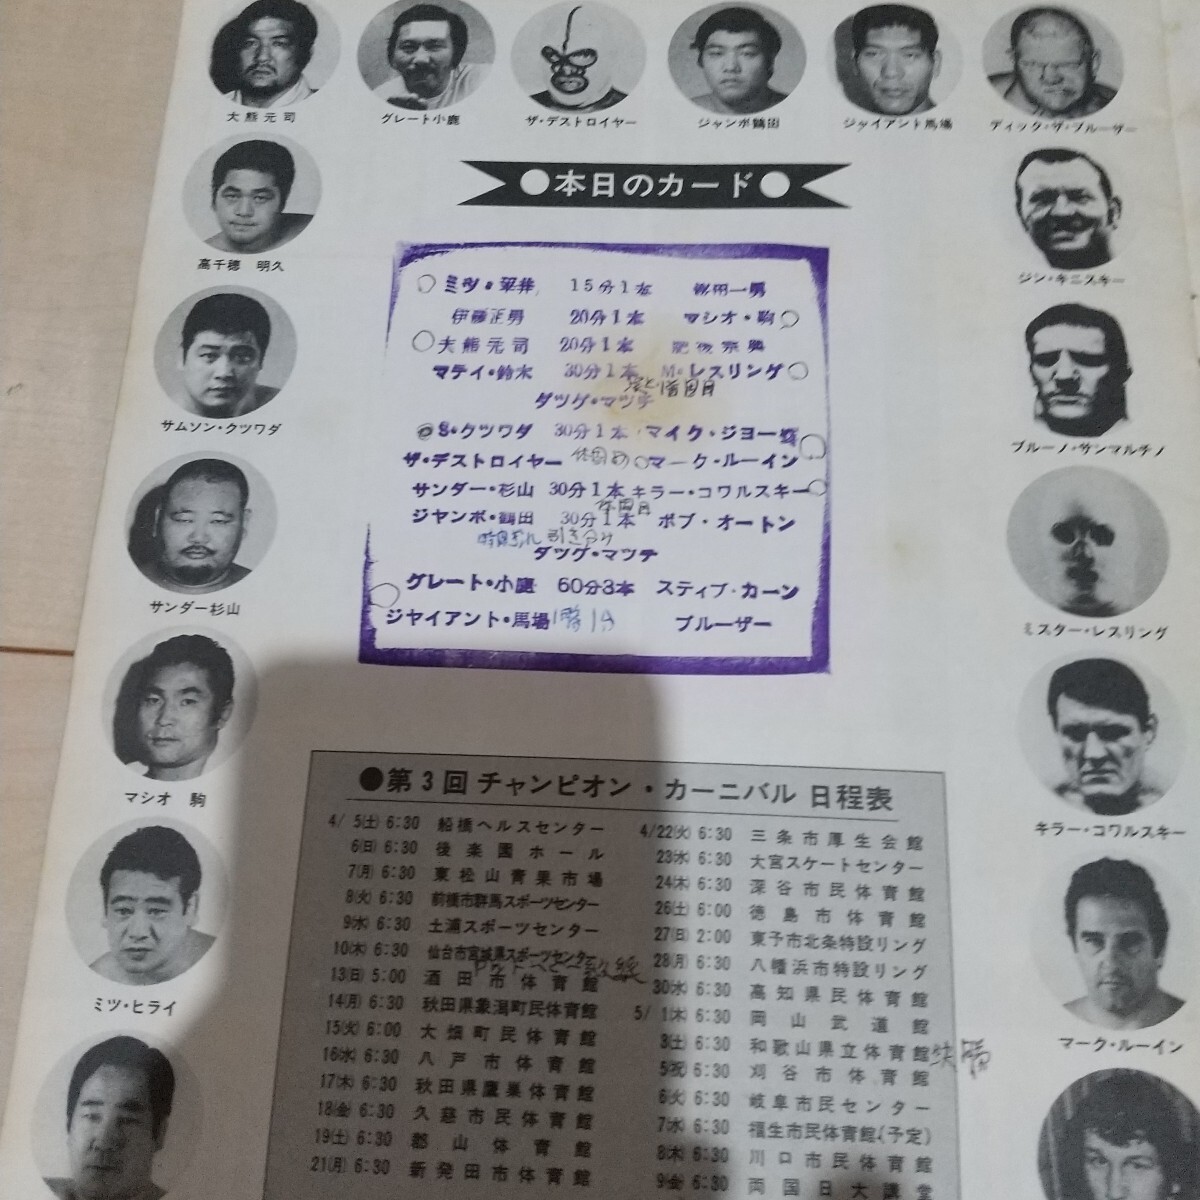 大熊元司
グレート小鹿
ザ・デストロイヤー
ジャンボ鶴田
ジャイアント馬場
ディック・ザ・ブルーザー
●本日のカード●
高千穂 明久
ジン・キニスキー
サムソン・クツワダ
ブルーノ・サンマルチノ
サンダー杉山
ミスター・レスリング
マシオ 駒
キラー・コワルスキー
ミツ・ヒライ
マーク・ルーイン
15分1本
伊藤正男 20分1本 マシオ・駒
大熊元司 20分1本
マテイ・鈴木 30分1本 M・レスリング
ダツグ・マツチ
S・クツワダ 30分1本 マイク・ジョー
ザ・デストロイヤー マーク・ルーイン
サンダー・杉山 30分1本 キラー・コワルスキー
ジヤンボ・鶴田 30分1本 ボブ・オートン
引き分け
ダツグ・マツチ
グレート・小鹿 60分3本 スティブ・カーン
ジヤイアント・馬場 ブルーザー
●第3回 チャンピオン・カーニバル 日程表
4/5(土) 6:30 船橋ヘルスセンター
6(日) 6:30 後楽園ホール
7(月) 6:30 東松山青果市場
8(火) 6:30 前橋市群馬スポーツセンター
9(水) 6:30 土浦スポーツセンター
10(木) 6:30 仙台市宮城県スポーツセンター
13(日) 5:00 酒田市体育館
14(月) 6:30 秋田県象潟町民体育館
15(火) 6:00 大畑町民体育館
16(水) 6:30 八戸市体育館
17(木) 6:30 秋田県鷹巣体育館
18(金) 6:30 久慈市民体育館
19(土) 6:30 郡山体育館
21(月) 6:30 新発田市体育館
4/22(火) 6:30 三条市厚生会館
23(水) 6:30 大宮スケートセンター
24(木) 6:30 深谷市民体育館
26(土) 6:00 徳島市体育館
27(日) 2:00 東予市北条特設リング
28(月) 6:30 八幡浜市特設リング
30(水) 6:30 高知県民体育館
5/1(木) 6:30 岡山武道館
3(土) 6:30 和歌山県立体育館
5(祝) 6:30 刈谷市体育館
6(火) 6:30 岐阜市民センター
7(水) 6:30 福生市民体育館(予定)
8(木) 6:30 川口市民体育館
9(金) 6:30 両国日大講堂